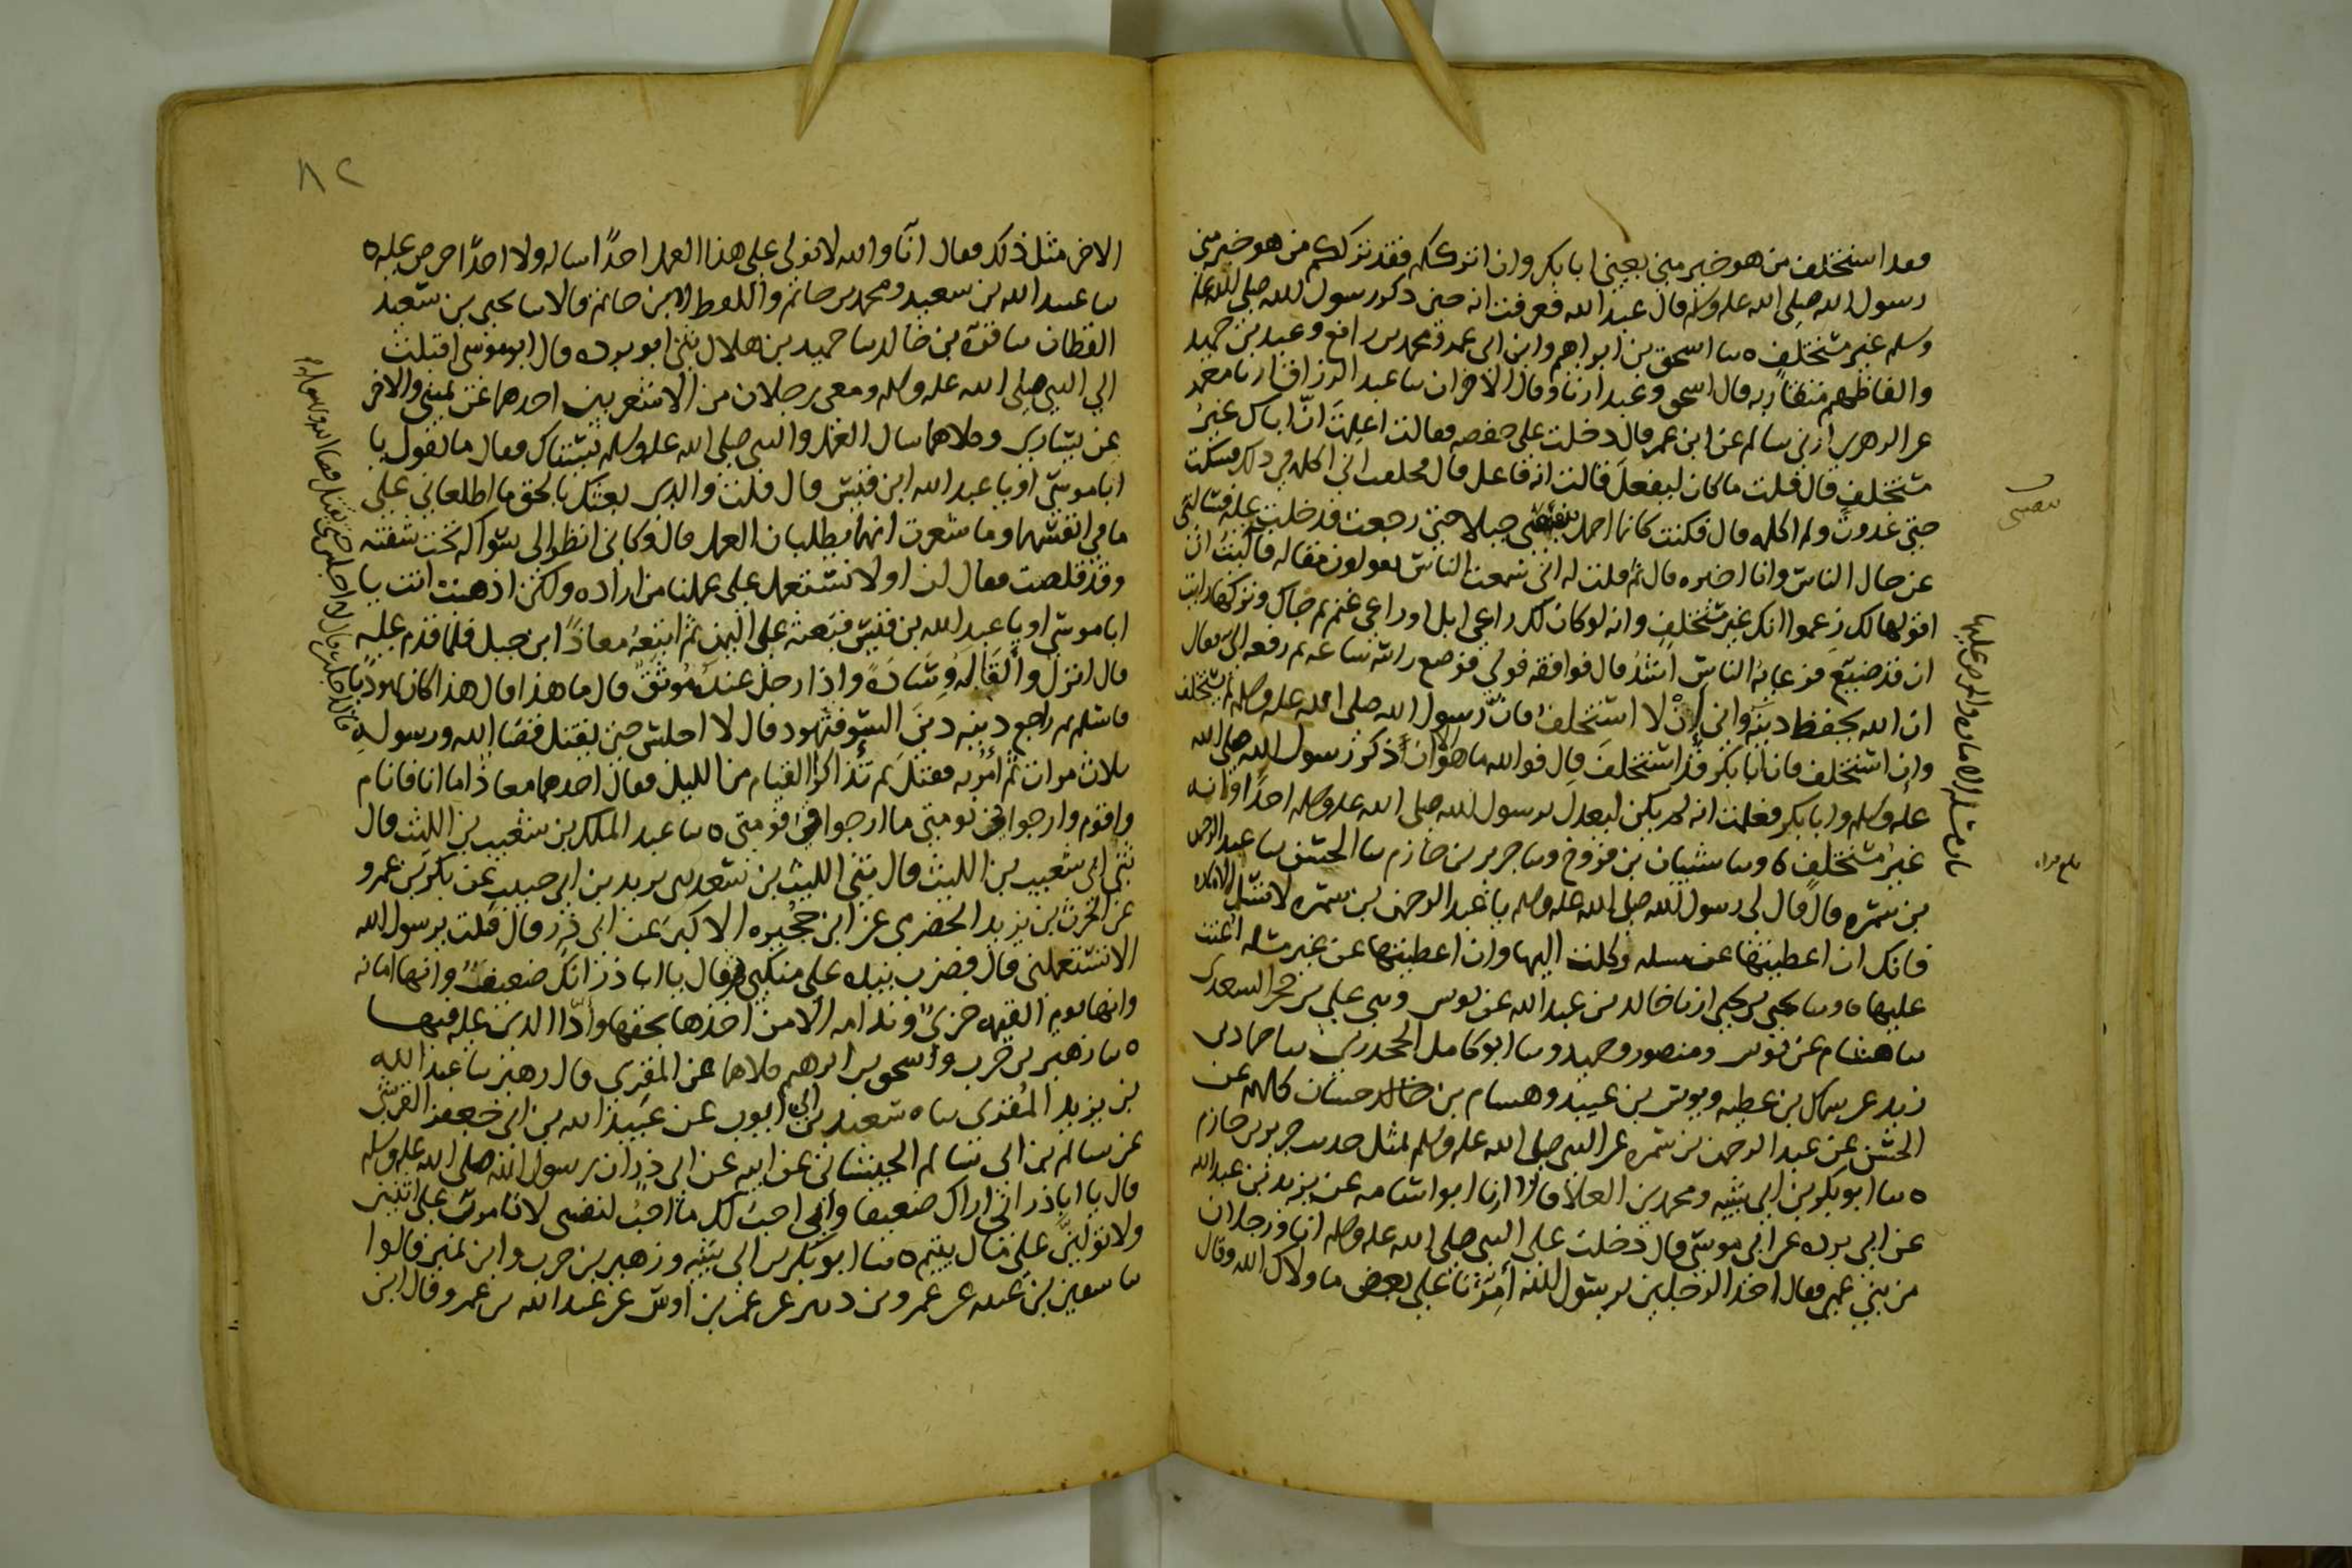 فقد استخلف من هو خير مني يعني ابا بكر وان اترككم فقد ترككم من هو خير مني
رسول الله صلى الله عليه وسلم قال عبد الله فعرفت انه حين ذكر رسول الله صلى الله عليه
وسلم غير مستخلف ٥ سا اسحق بن ابراهيم وابن ابي عمر ومحمد بن رافع وعبد بن حميد
والفاظهم متقاربه قال اسحق وعبد ارنا وقال الاخران سا عبد الرزاق ارنا معمر
عن الزهري ارني سالم عن ابن عمر قال دخلت على حفصه فقالت اعلمت ان اباك غير
مستخلف قال قلت ما كان ليفعل قالت انه فاعل قال فحلفت اني اكلمه في ذلك فسكت
حتى غدوت ولم اكلمه قال فكنت كانما احمل بيميني جبلا حتى رجعت فدخلت عليه فسالني
عن حال الناس وانا اخبره قال ثم قلت له اني سمعت الناس يقولون مقاله فآليت ان
اقولها لك زعموا انك غير مستخلف وانه لو كان لك راعي ابل او راعي غنم ثم جاك وتركها رايت
ان قد ضيع فرعايه الناس اشد قال فوافقه قولي فوضع راسه ساعه ثم رفعه الي فقال
ان الله يحفظ دينه واني إن لا استخلف فان رسول الله صلى الله عليه وسلم لم يستخلف
وان استخلف فان ابا بكر قد استخلف قال فوالله ما هو الا ان ذكر رسول الله صلى الله
عليه وسلم وابا بكر فعلمت انه لم يكن ليعدل برسول الله صلى الله عليه وسلم احدا وانه
غير مستخلف ٥ وسا شيبان بن فروخ وسا جرير بن حازم سا الحسن سا عبد الرحمن
بن سمره قال قال لي رسول الله صلى الله عليه وسلم يا عبد الرحمن بن سمره لا تسل الاماره
فانك ان اعطيتها عن مسله وكلت اليها وان اعطيتها عن غير مسله اعنت
عليها ٥ وسا يحيى بن يحيى ارنا خالد بن عبد الله عن يونس وسي علي بن حجر السعدي
سا هشام عن يونس ومنصور وحميد وسا ابو كامل الجحدري سا حماد بن
زيد عن سماك بن عطيه ويونس بن عبيد وهشام بن حسان كلهم عن
الحسن عن عبد الرحمن بن سمره عن النبي صلى الله عليه وسلم بمثل حديث جرير بن حازم
٥ سا ابو بكر بن ابي شيبه ومحمد بن العلا قالا ارنا ابو اسامه عن بريد بن عبد الله
عن ابي برده عن ابي موسى قال دخلت على النبي صلى الله عليه وسلم انا ورجلان
من بني عمي فقال احد الرجلين يرسول الله أمّرنا على بعض ما ولاك الله وقال
باب مسله الاماره والحرص عليها
٨٢
الاخر مثل ذلك فقال انا والله لا نولي على هذا العمل احدا ساله ولا احدا حرص عليه ٥
سا عبيد الله بن سعيد ومحمد بن حاتم واللفظ لابن حاتم قالا سا يحيى بن سعيد
القطان سا قره بن خالد سا حميد بن هلال ثني ابو برده قال ابو موسى اقبلت
الى النبي صلى الله عليه وسلم ومعي رجلان من الاشعريين احدهما عن يميني والاخر
عن يساري وكلاهما سال العمل والنبي صلى الله عليه وسلم يستاك فقال ما تقول يا
ابا موسى او يا عبد الله ابن قيس قال قلت والذي بعثك بالحق ما اطلعاني على
ما في انفسهما وما شعرت انهما يطلبان العمل قال وكاني انظر الى سواكه تحت شفته
وقد قلصت فقال لن او لا نستعمل على عملنا من اراده ولكن اذهب انت يا
ابا موسى او يا عبد الله بن قيس فبعثه على اليمن ثم اتبعه معاذ ابن جبل فلما قدم عليه
قال انزل وألقى له وسادة واذا رجل عنده موثق قال ما هذا قال هذا كان يهوديا
فاسلم ثم راجع دينه دين السو فتهود قال لا اجلس حتى يقتل قضا الله ورسوله
قال اجلس قال لا اجلس حتى يقتل قضا الله ورسوله
ثلاث مرات ثم أمر به فقتل ثم تذاكرا القيام من الليل فقال احدهما معاذ اما انا فانام
واقوم وارجوا في نومتي ما ارجوا في قومتي ٥ سا عبد الملك بن شعيب بن الليث قال
ثني ابي شعيب بن الليث قال ثني الليث بن سعد سي يزيد بن ابي حبيب عن بكر بن عمرو
عن الحرث بن يزيد الحضري عن ابن حجيره الاكبر عن ابي ذر قال قلت يرسول الله
الا تستعملني قال فضرب بيده على منكبي ثم قال يا ابا ذر انك ضعيف وانها امانه
وانها يوم القيمه خزي وندامه الا من اخذها بحقها وأدّا الذي عليه فيها
٥ سا زهير بن حرب واسحق بن ابرهيم كلاهما عن المقرى قال زهير سا عبد الله
بن يزيد المقرى سا سعيد بن ابي ايوب عن عبيد الله بن ابي جعفر القرشي
عن سالم بن ابي سالم الجيشاني عن ابيه عن ابي ذر ان رسول الله صلى الله عليه وسلم
قال يا ابا ذر اني اراك ضعيفا واني احب لك ما احب لنفسي لا تامرن على اثنين
ولا تولين على مال يتيم ٥ سا ابو بكر بن ابي شيبه وزهير بن حرب وابن نمير قالوا
سا سفين بن عيينه عن عمرو بن دينر عن عمر بن اوس عن عبد الله بن عمرو قال ابن